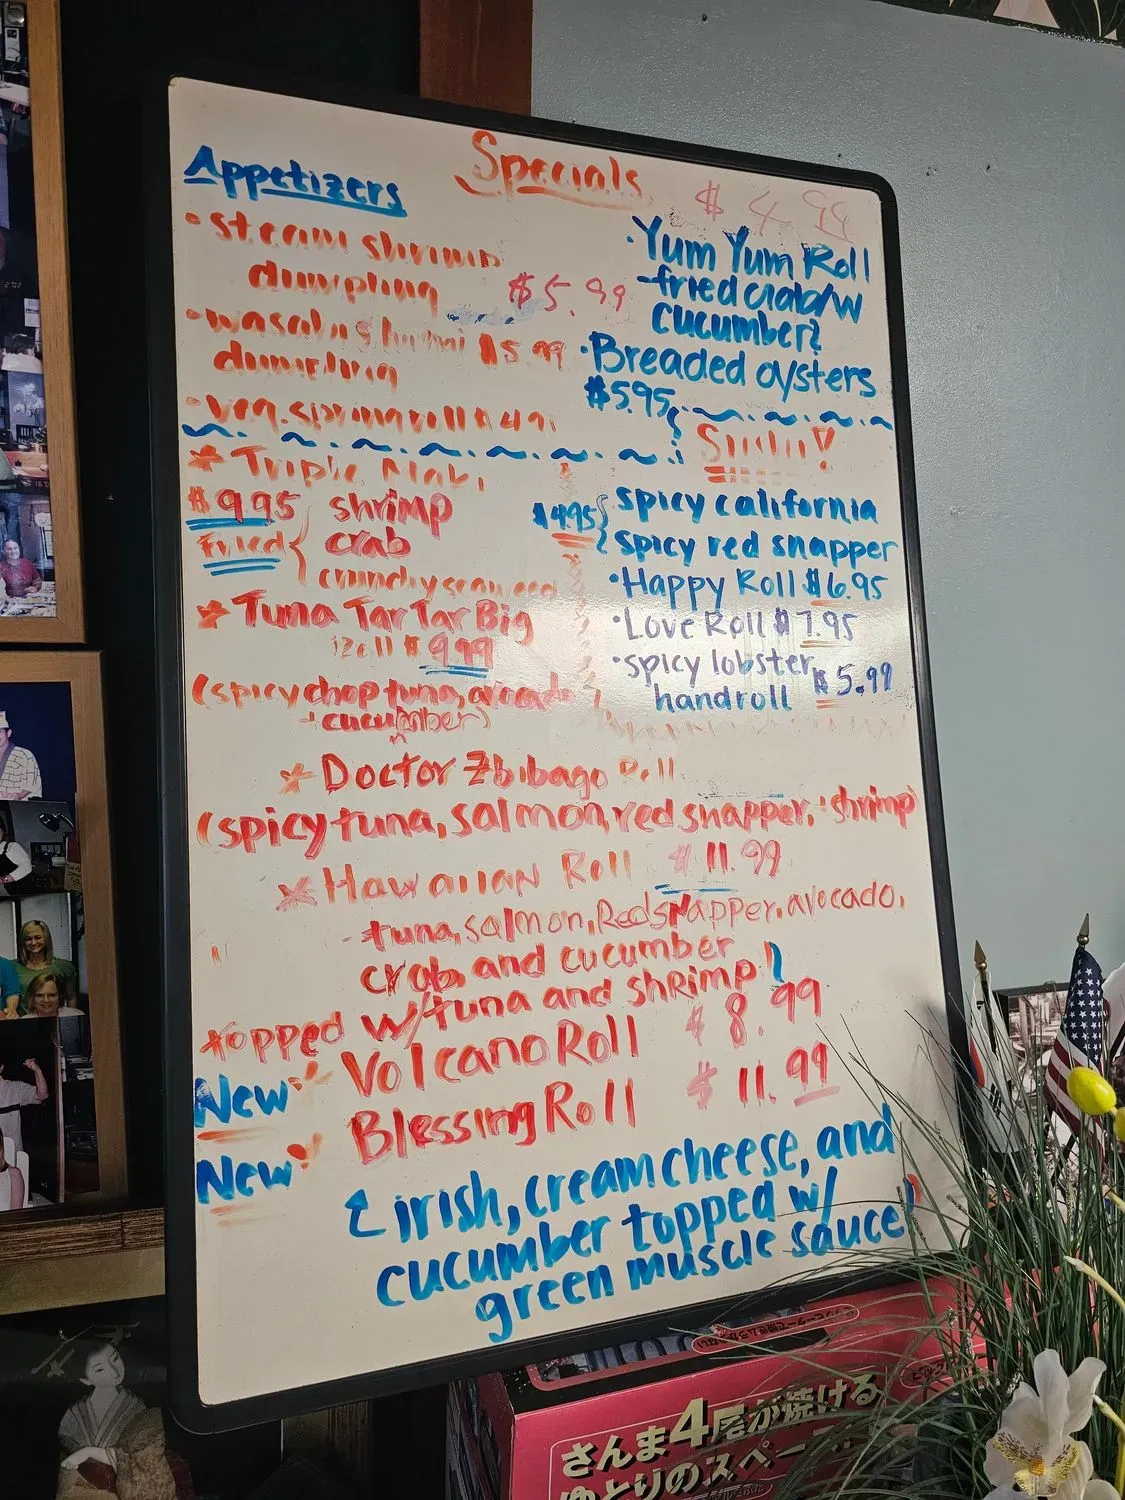 Specials
Appetizers
• steam shrimp
dumpling $5.99
• wasabi shumai $5.99
dumpling
• veg. spring roll $4.9
$4.99
• Yum Yum Roll
-fried crab/w
cucumber
• Breaded oysters
$5.95
* Triple Maki
$9.95 shrimp
Fried { crab
crunchy seaweed
* Tuna TarTar Big
Roll $9.99
(spicy chop tuna, avocado
+cucumber)
Sushi!
$4.95 { spicy california
spicy red snapper
• Happy Roll $6.95
• Love Roll $7.95
• spicy lobster $5.99
handroll
* Doctor Zbibago Roll
(spicy tuna, salmon, red snapper, + shrimp)
* Hawaiian Roll $11.99
- tuna, salmon, Redsnapper, avocado,
crab and cucumber
topped w/tuna and shrimp
New * Volcano Roll $8.99
New * Blessing Roll $11.99
irish, cream cheese, and
cucumber topped w/
green muscle sauce
さんま4尾が焼ける
ゆとりのスペース